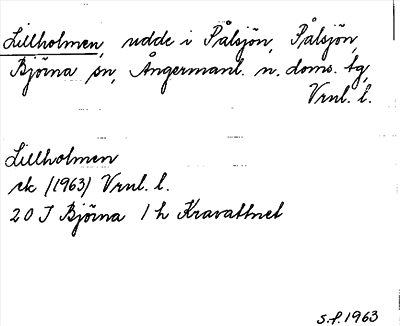 Lillholmen, udde i Pålsjön, Pålsjön,
Björna sn, Ångermanl. n. doms. tg,
Vrnl. l.
Lillholmen
rk (1963) Vrnl. l.
20 J Björna 1 h Kravattnet
s.f. 1963